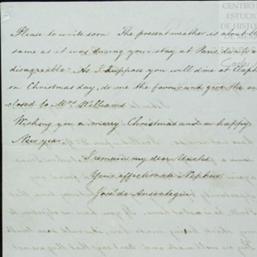 CENTRO
ESTUDI
DE HISTO
Please to write soon. The present weather is about the
same as it was during your stay at Paris,
disagreable. As I suppose you will dine at Clapham
on Christmas day, do me the favour and give the en
closed to Mrs. Williams
Wishing you a merry Christmas and a happy
New year.
I remain my dear Uncle
Your affectionate Nephew
José de Ansoategui